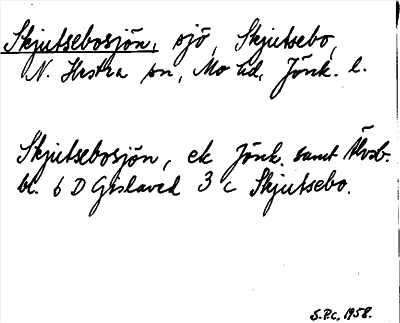 Skjutsebosjön, sjö, Skjutsebo,
N. Hestra sn, Mo hd, Jönk. l.
Skjutsebosjön, ek Jönk. samt Älvsb.
bl. 6 D Gislaved 3 c Skjutsebo.
S.P.c. 1958.